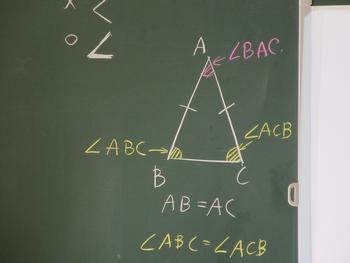 × <
○ ∠
A
∠BAC.
∠ABC
∠ACB
B
C
AB=AC
∠ABC=∠ACB